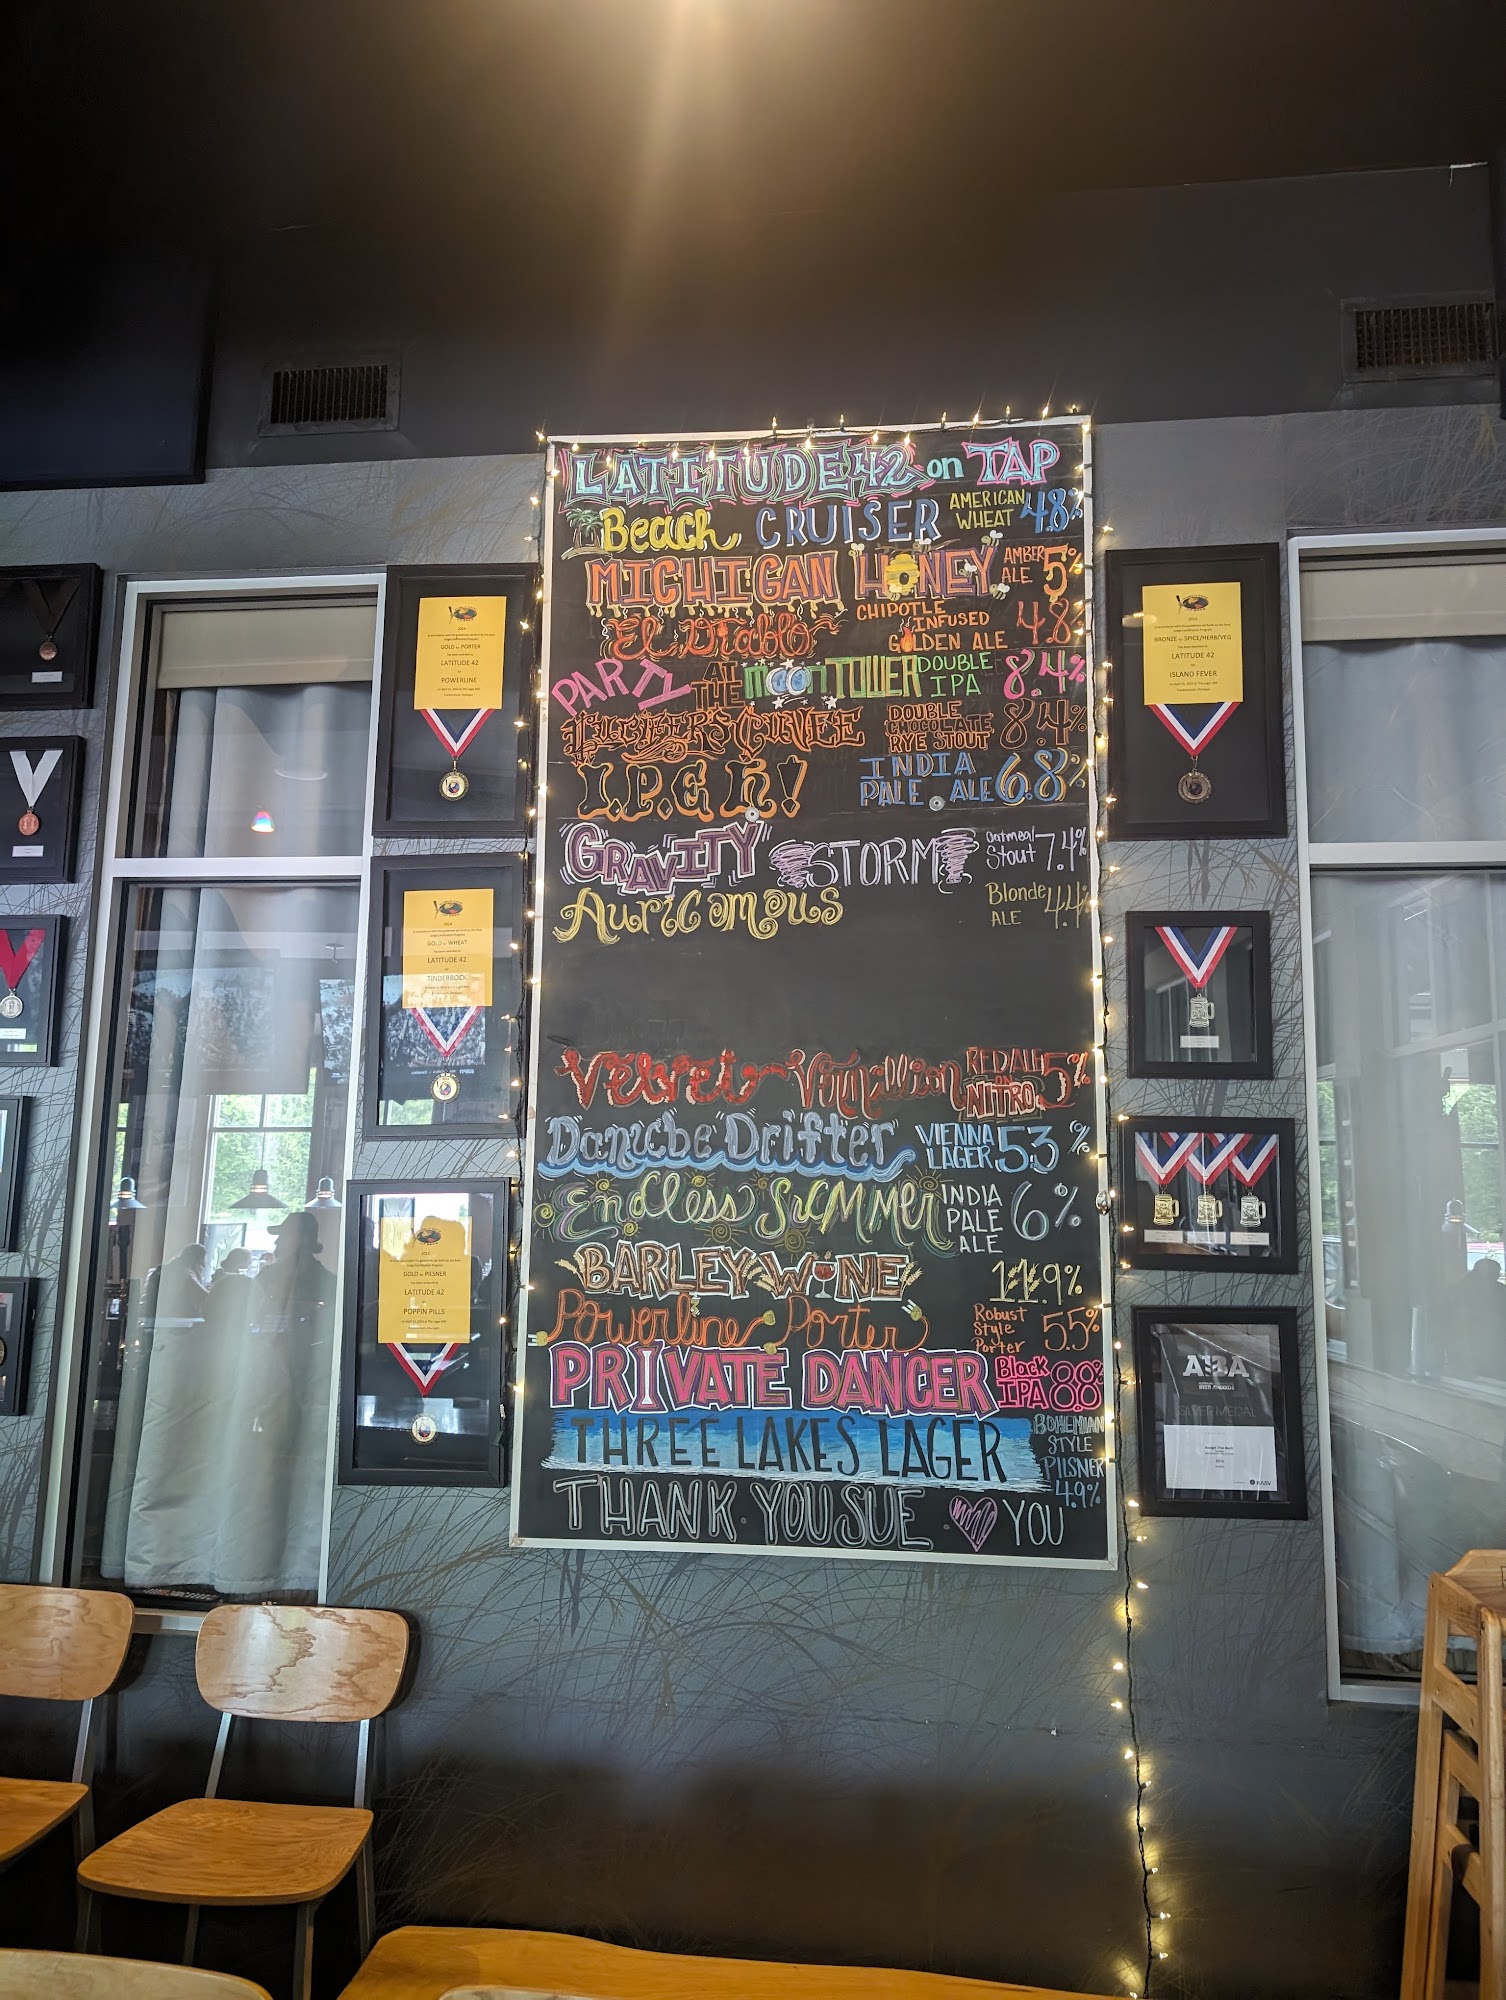 LATITUDE 42 on TAP
Beach CRUISER AMERICAN WHEAT 4.8%
MICHIGAN HONEY AMBER ALE 5%
El Diablo CHIPOTLE INFUSED GOLDEN ALE 4.8%
PARTY AT THE moon TOWER DOUBLE IPA 8.4%
LUCIFER'S CUVEE DOUBLE CHOCOLATE RYE STOUT 8.4%
I.P.Eh! INDIA PALE ALE 6.8%
GRAVITY STORM Oatmeal Stout 7.4%
Auricomous Blonde ALE 4.4%
Velvet Vermillion RED ALE ON NITRO 5%
Danube Drifter VIENNA LAGER 5.3%
Endless SUMMer INDIA PALE ALE 6%
BARLEY WINE 11.9%
Powerline Porter Robust Style Porter 5.5%
PRIVATE DANCER Black IPA 8.8%
THREE LAKES LAGER BOHEMIAN STYLE PILSNER 4.9%
THANK YOU SUE YOU
2014
GOLD for PORTER
LATITUDE 42
POWERLINE
2014
GOLD for WHEAT
LATITUDE 42
TINDERBOCK
2014
GOLD for PILSNER
LATITUDE 42
POPPIN PILLS
BRONZE for SPICE/HERB/VEG
LATITUDE 42
ISLAND FEVER
SILVER MEDAL